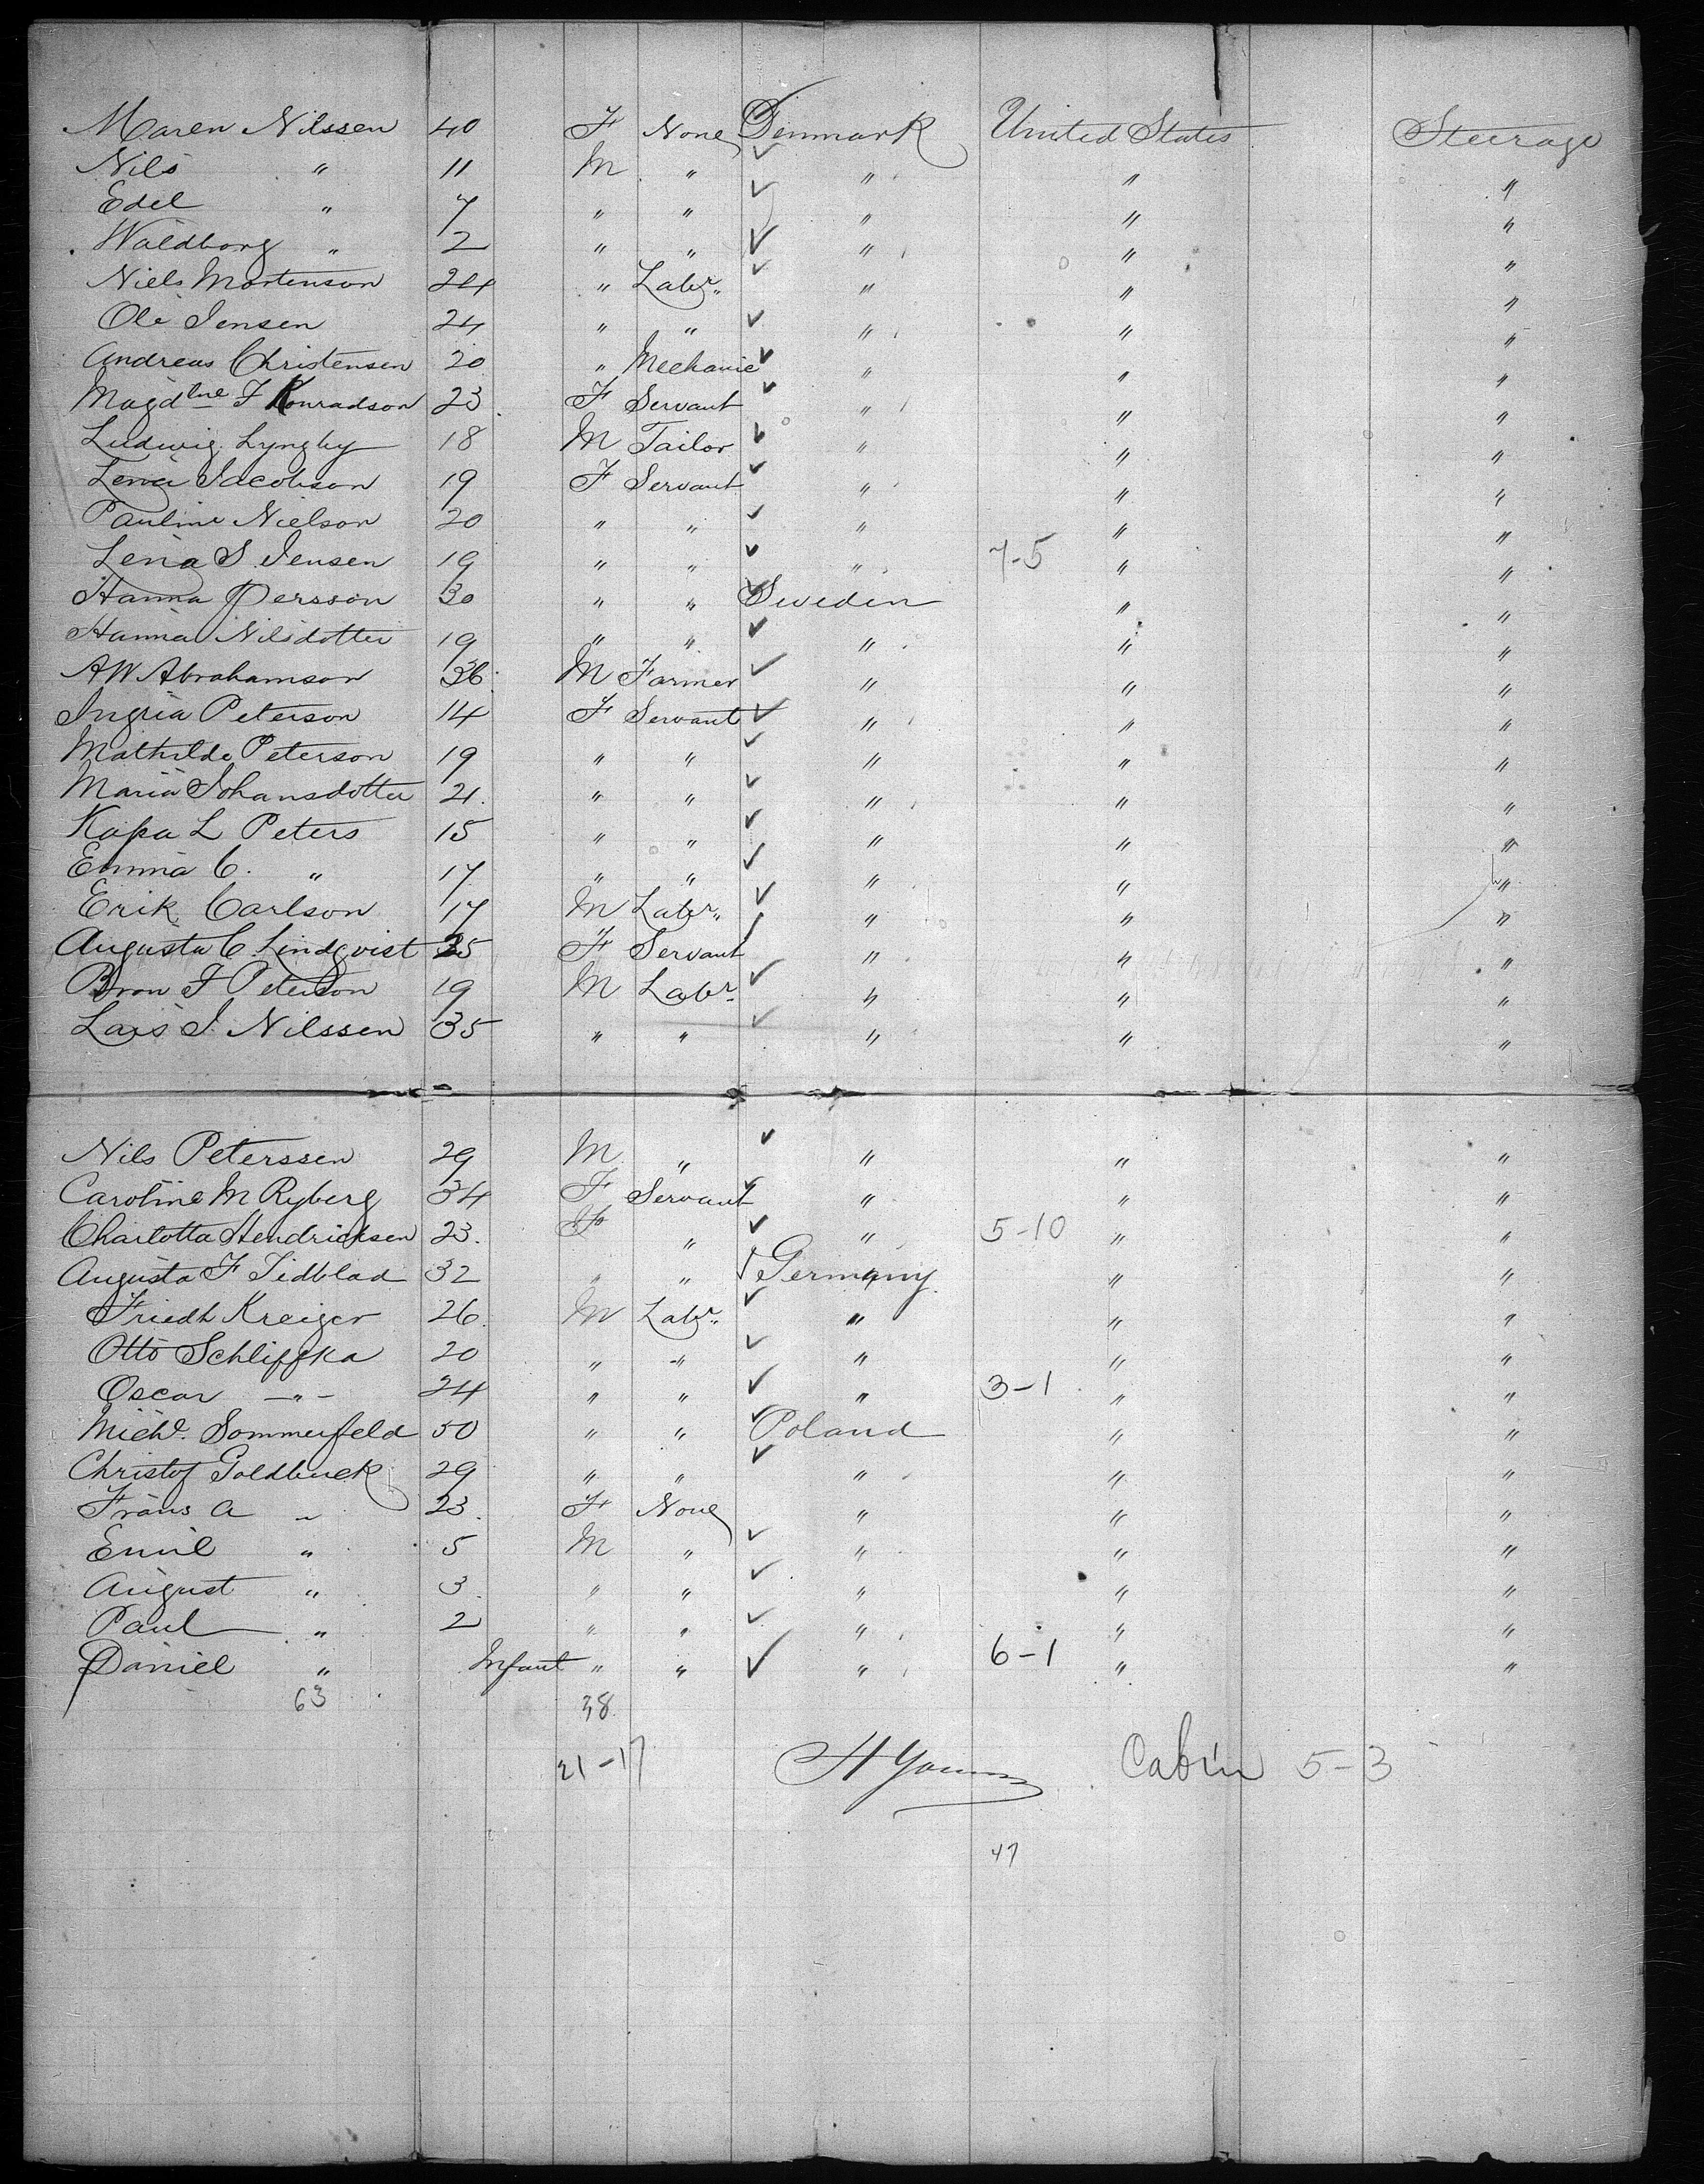 Maren Nilssen 40 F None Denmark United States Steerage
Nils " 11 M " " " "
Edel " 7 " " " " "
Waldborg " 2 " " " " "
Niels Mortenson 24 " Labr. " " "
Ole Jensen 24 " " " " "
Andreas Christensen 20 " Mechanic " " "
Magdlne F Konradson 23 F Servant " " "
Ludwig Lyngby 18 M Tailor " " "
Lena Jacobson 19 F Servant " " "
Pauline Nielson 20 " " " " "
Lena S. Jensen 19 " " " 7-5 " "
Hanna Persson 30 " " Sweden " "
Hanna Nilsdotter 19 " " " " "
AW Abrahamson 36 M Farmer " " "
Ingria Peterson 14 F Servant " " "
Mathilde Peterson 19 " " " " "
Maria Johansdotter 21 " " " " "
Kapa L Peters 15 " " " " "
Emma C. " 17 " " " " "
Erik Carlson 17 M Labr. " " "
Augusta C. Lindqvist 35 F Servant " " "
F Peterson 19 M Labr " " "
Lars J. Nilssen 35 " " " " "
Nils Peterssen 29 M " " " "
Caroline M Ryberg 34 F Servant " " "
Charlotta Hendricksen 23. F " " 5-10 " "
Augusta F Tidblad 32 " " Germany " "
Friedh Kreiger 26 M Labr. " " "
Otto Schliffka 20 " " " " "
Oscar - " - 24 " " " 3-1 " "
Michl. Sommerfeld 50 " " Poland " "
Christof Goldbuck 29 " " " " "
Frans A " 23. F None " " "
Emil " 5 M " " " "
August " 3. " " " " "
Paul " 2 " " " " "
Daniel " Infant " " " 6-1 " "
63 38
21-17 H Young Cabin 5-3
47